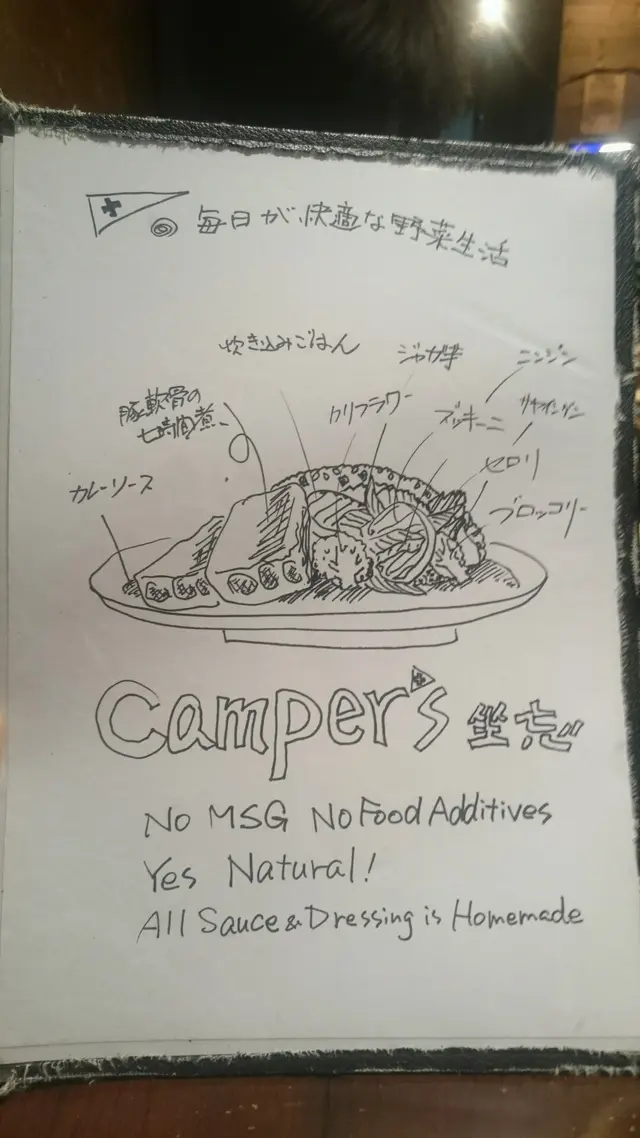 毎日が快適な野菜生活
炊き込みごはん
ジャガ芋
ニンジン
豚軟骨の
七時間煮
カリフラワー
ズッキーニ
カレーソース
セロリ
ブロッコリー
Camper's 坐忘
No MSG No Food Additives
Yes Natural!
All Sauce & Dressing is Homemade